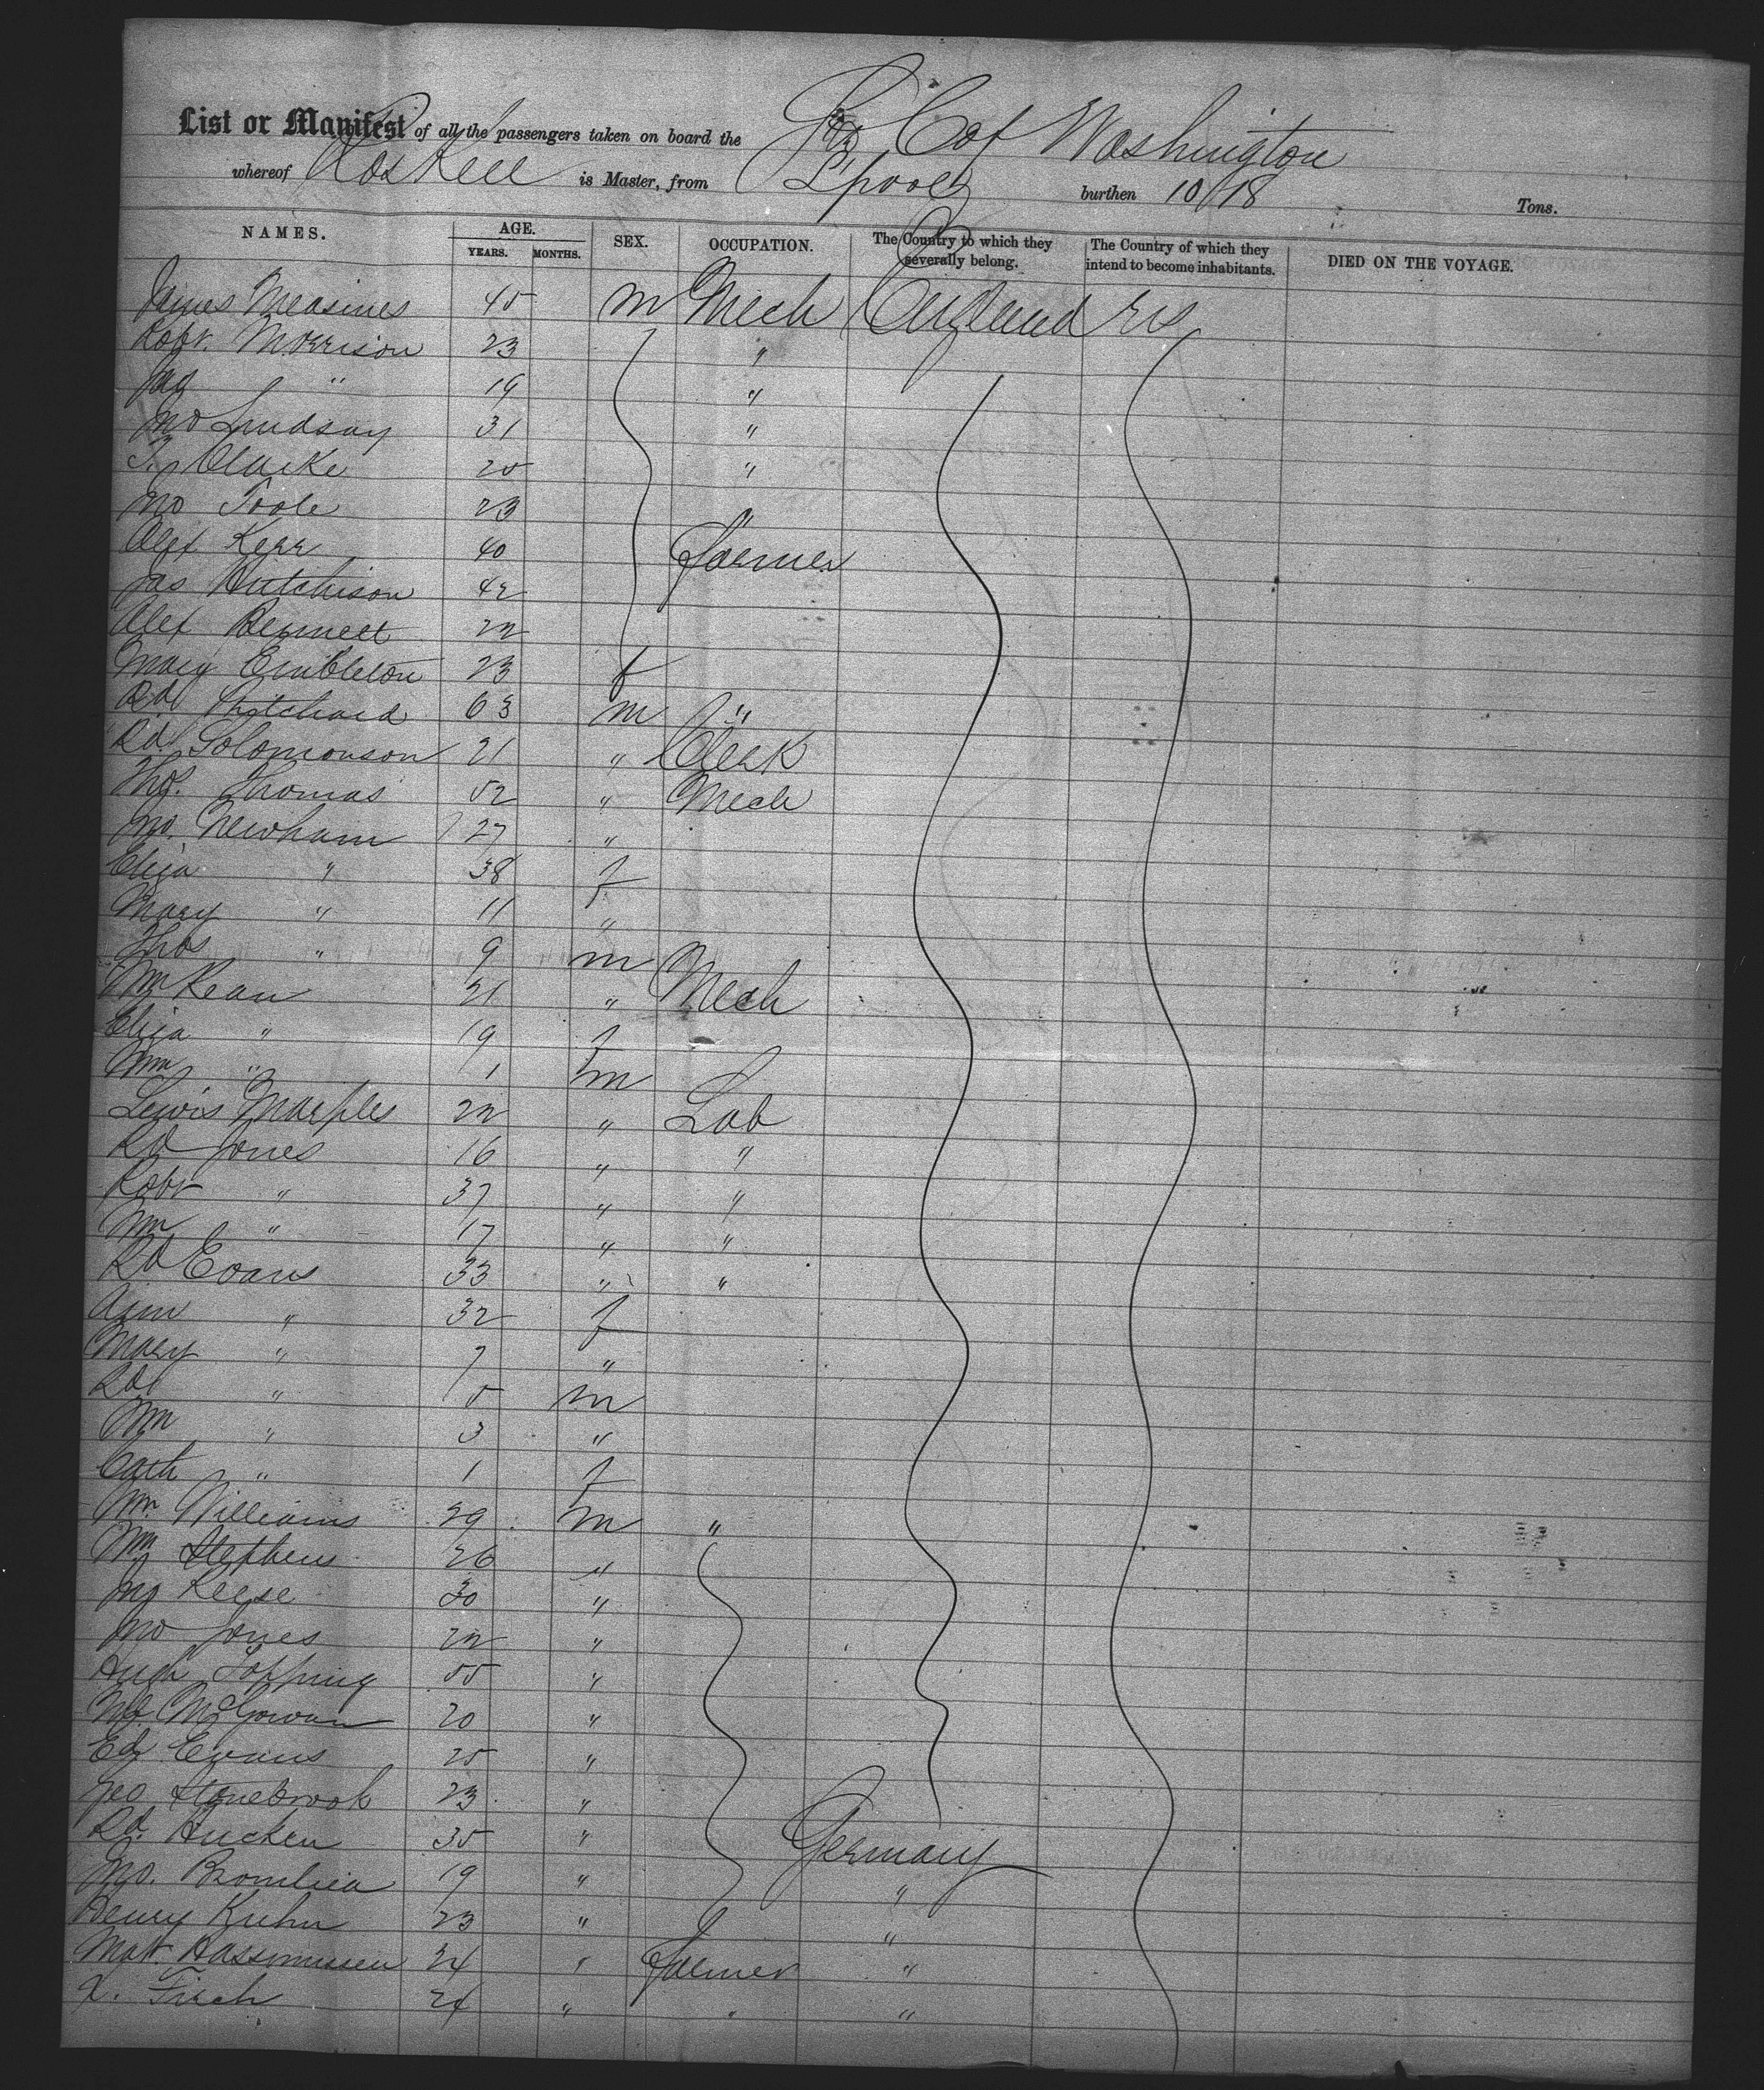 List or Manifest of all the passengers taken on board the SS C of Washington
whereof Roskell is Master, from L'pool burthen 1018 Tons.
NAMES. AGE. SEX. OCCUPATION. The Country to which they severally belong. The Country of which they intend to become inhabitants. DIED ON THE VOYAGE.
YEARS. MONTHS.
James 45 m Mech England US
Robt. Morrison 23 "
Jas " 19 "
Jno Lindsay 31 "
T. Clarke 25 "
Jno Toole 23 "
Alex Kerr 40 Farmer
Jas Hutchison 42
Alex Bennett 22
Mary Embleton 23 f
Rd Pritchard 63 m "
Rd. Solomonson 21 " Clerk
Thos. Thomas 52 " Mech
Jno. Newham 27 "
Eliza " 38 f
Mary " 11 "
Thos " 9 m
Wm Kean 21 " Mech
Eliza " 19 f
Wm " 1 m
Lewis Marples 22 " Lab
Rd Jones 16 " "
Robt " 37 " "
Wm " 17 " "
Rd Evans 33 " "
Ann " 32 f
Mary " 7 "
Rd " 5 m
Wm " 3 "
Cath " 1 f
Wm. Williams 29 m "
Wm Stephens 26 "
Jno Reese 30 "
Jno Jones 22 "
Hugh Topping 55 "
McGowan 20 "
Ed Evans 25 "
Geo Stonebrook 23 "
Rd. Hucken 35 " Germany
Jno. 19 " "
Henry Kuhn 23 " "
Mat. Rassmussen 24 " Farmer "
Firch 24 " " "